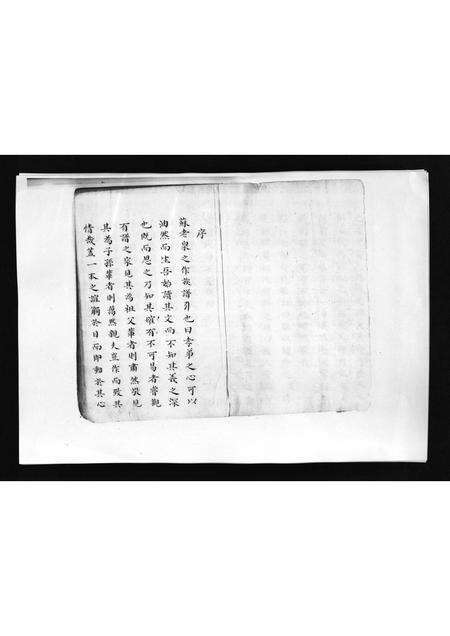 序
蘇老泉之作族譜引也曰孝弟之心可以
油然而生吾始讀其文而不知其義之深
也既而思之乃知其確有不可易者嘗觀
有譜之家見其為祖父輩者則肅然敬見
其為子孫輩者則藹然親夫豈作而致其
情哉蓋一本之誼觸於目而即動於其心